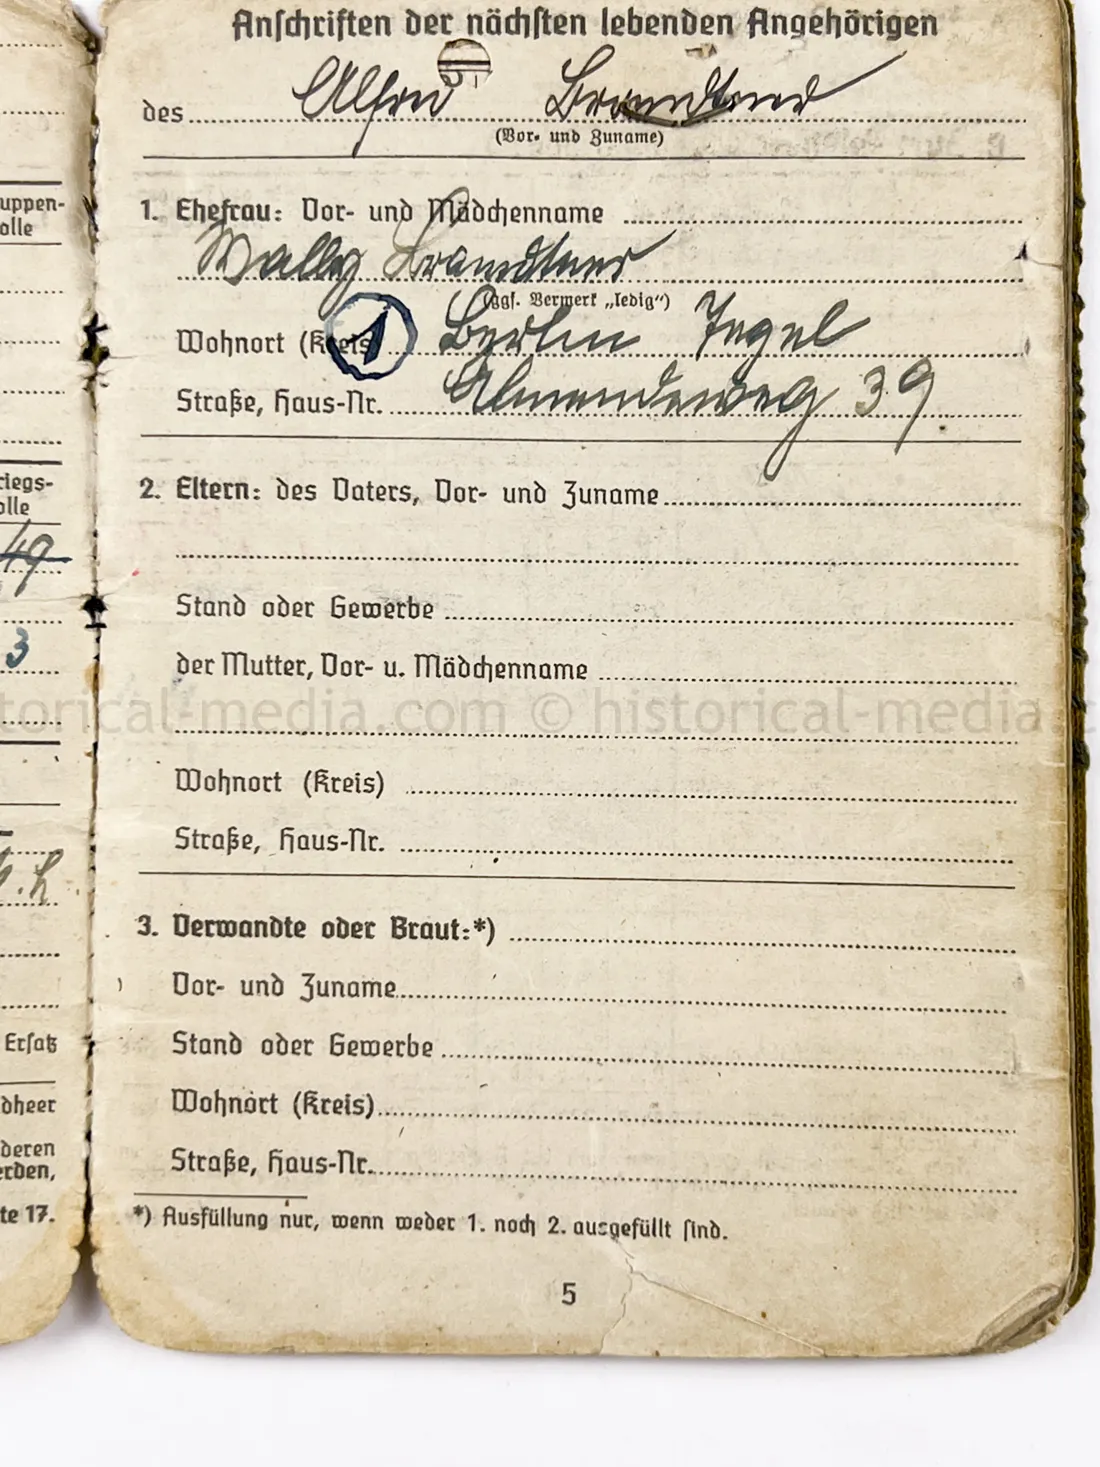 Anschriften der nächsten lebenden Angehörigen
des Alfred Brandtner
(Vor- und Zuname)
1. Ehefrau: Vor- und Mädchenname
Wally Brandtner
(ggf. Vermerk „ledig“)
Wohnort (Kreis) Berlin Tegel
1
Straße, Haus-Nr. Almendeweg 39
2. Eltern: des Vaters, Vor- und Zuname
Stand oder Gewerbe
der Mutter, Vor- u. Mädchenname
Wohnort (Kreis)
Straße, Haus-Nr.
3. Verwandte oder Braut:*)
Vor- und Zuname
Stand oder Gewerbe
Wohnort (Kreis)
Straße, Haus-Nr.
*) Ausfüllung nur, wenn weder 1. noch 2. ausgefüllt sind.
5
uppen-
olle
riegs-
olle
49
3
Ersatz
dheer
deren
erden,
te 17.
torical-media.com © historical-media.c